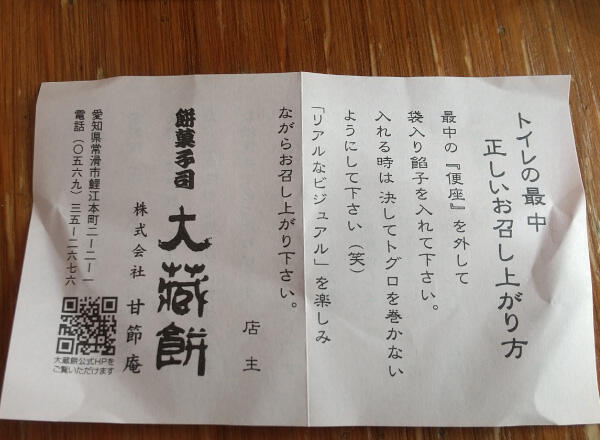 トイレの最中
正しいお召し上がり方
最中の『便座』を外して
袋入り餡子を入れて下さい。
入れる時は決してトグロを巻かない
ようにして下さい(笑)
「リアルなビジュアル」を楽しみ
ながらお召し上がり下さい。
店主
餅菓子司
大蔵餅
株式会社 甘節庵
愛知県常滑市鯉江本町二ー二ー一
電話(〇五六九)三五ー二六七六
大蔵餅公式HPを
ご覧いただけます